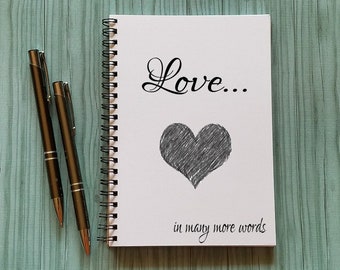 Love...
in many more words